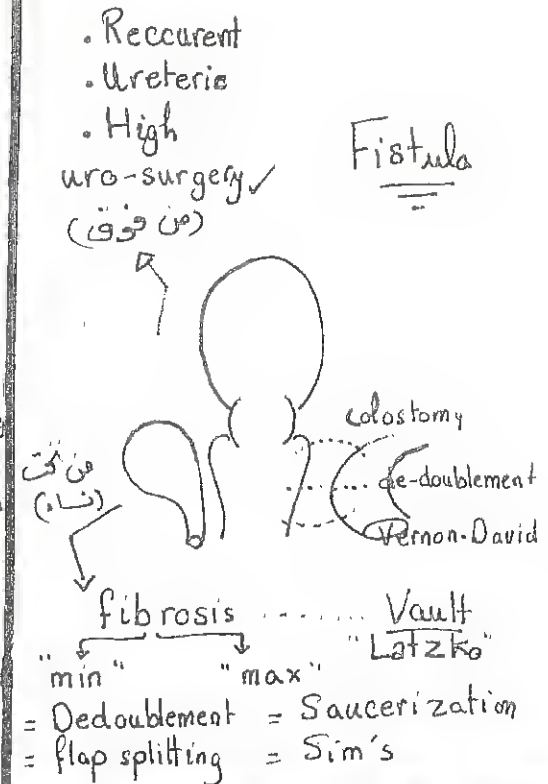 . Reccurent
. Ureteric
. High
uro-surgery ✓
(من فوق)
Fistula
colostomy
de-doublement
Vernon-David
من تحت
(نساء)
fibrosis ........ Vault
"Latzko"
"min" "max"
= Dedoublement = Saucerization
= flap splitting = Sim's